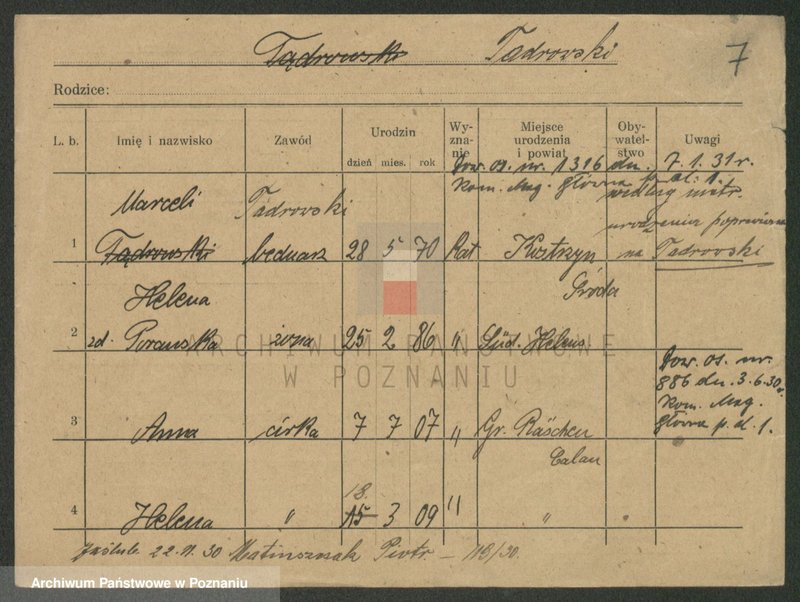 Tądrowski Tadrovski 7
Rodzice:
L. b. Imię i nazwisko Zawód Urodzin dzień mies. rok Wyznanie Miejsce urodzenia i powiat Obywatelstwo Uwagi
Dow. os. nr. 1316 dn. 7. 1. 31 r.
Kom. Mag. Główna p. d. 1.
Marceli Tadrovski według metr.
urodzenia poprawiono
1 Tądrowski bednarz 28 5 70 Kat Kostrzyn na Tadrovski
Helena Środa
2 zd. Porawska żona 25 2 86 " Süd. Helens
ARCHIWUM PAŃSTWOWE
W POZNANIU
Dow. os. nr.
886 dn. 3. 6. 30 r.
Kom. Mag.
3 Anna córka 7 7 07 " Gr. Räschen Główna p. d. 1.
Calau
18.
4 Helena " 15 3 09 " "
zaślub. 22. 11. 30 Matuszczak Piotr – 118/30.
Archiwum Państwowe w Poznaniu